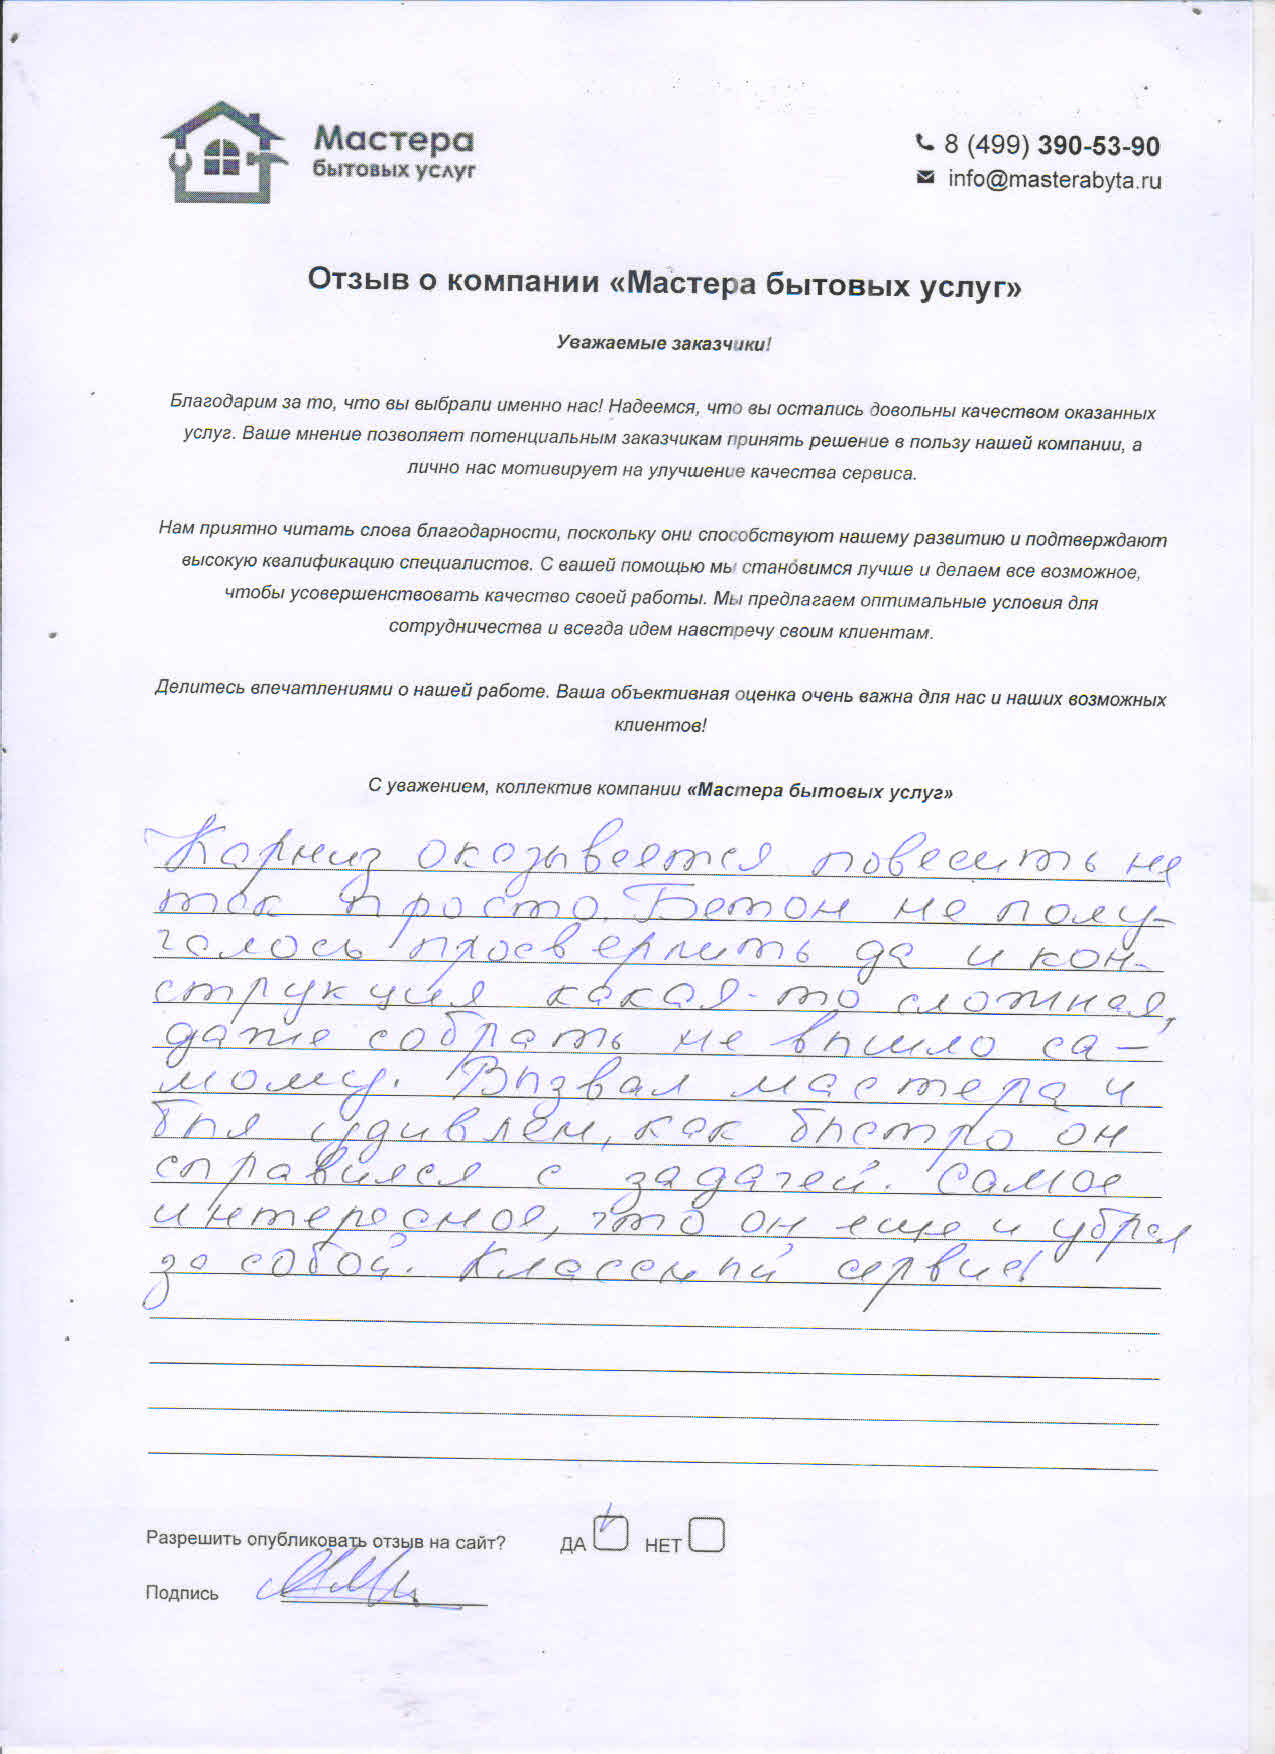 Мастера
бытовых услуг
8 (499) 390-53-90
info@masterabyta.ru
Отзыв о компании «Мастера бытовых услуг»
Уважаемые заказчики!
Благодарим за то, что вы выбрали именно нас! Надеемся, что вы остались довольны качеством оказанных
услуг. Ваше мнение позволяет потенциальным заказчикам принять решение в пользу нашей компании, а
лично нас мотивирует на улучшение качества сервиса.
Нам приятно читать слова благодарности, поскольку они способствуют нашему развитию и подтверждают
высокую квалификацию специалистов. С вашей помощью мы становимся лучше и делаем все возможное,
чтобы усовершенствовать качество своей работы. Мы предлагаем оптимальные условия для
сотрудничества и всегда идем навстречу своим клиентам.
Делитесь впечатлениями о нашей работе. Ваша объективная оценка очень важна для нас и наших возможных
клиентов!
С уважением, коллектив компании «Мастера бытовых услуг»
Карниз оказывается повесить не
так просто. Бетон не полу-
чалось просверлить да и кон-
струкция какая-то сложная,
даже собрать не вышло са-
мому. Вызвал мастера и
был удивлен, как быстро он
справился с задачей. Самое
интересное, что он еще и убрал
за собой. Классный сервис!
Разрешить опубликовать отзыв на сайт? ДА НЕТ
Подпись